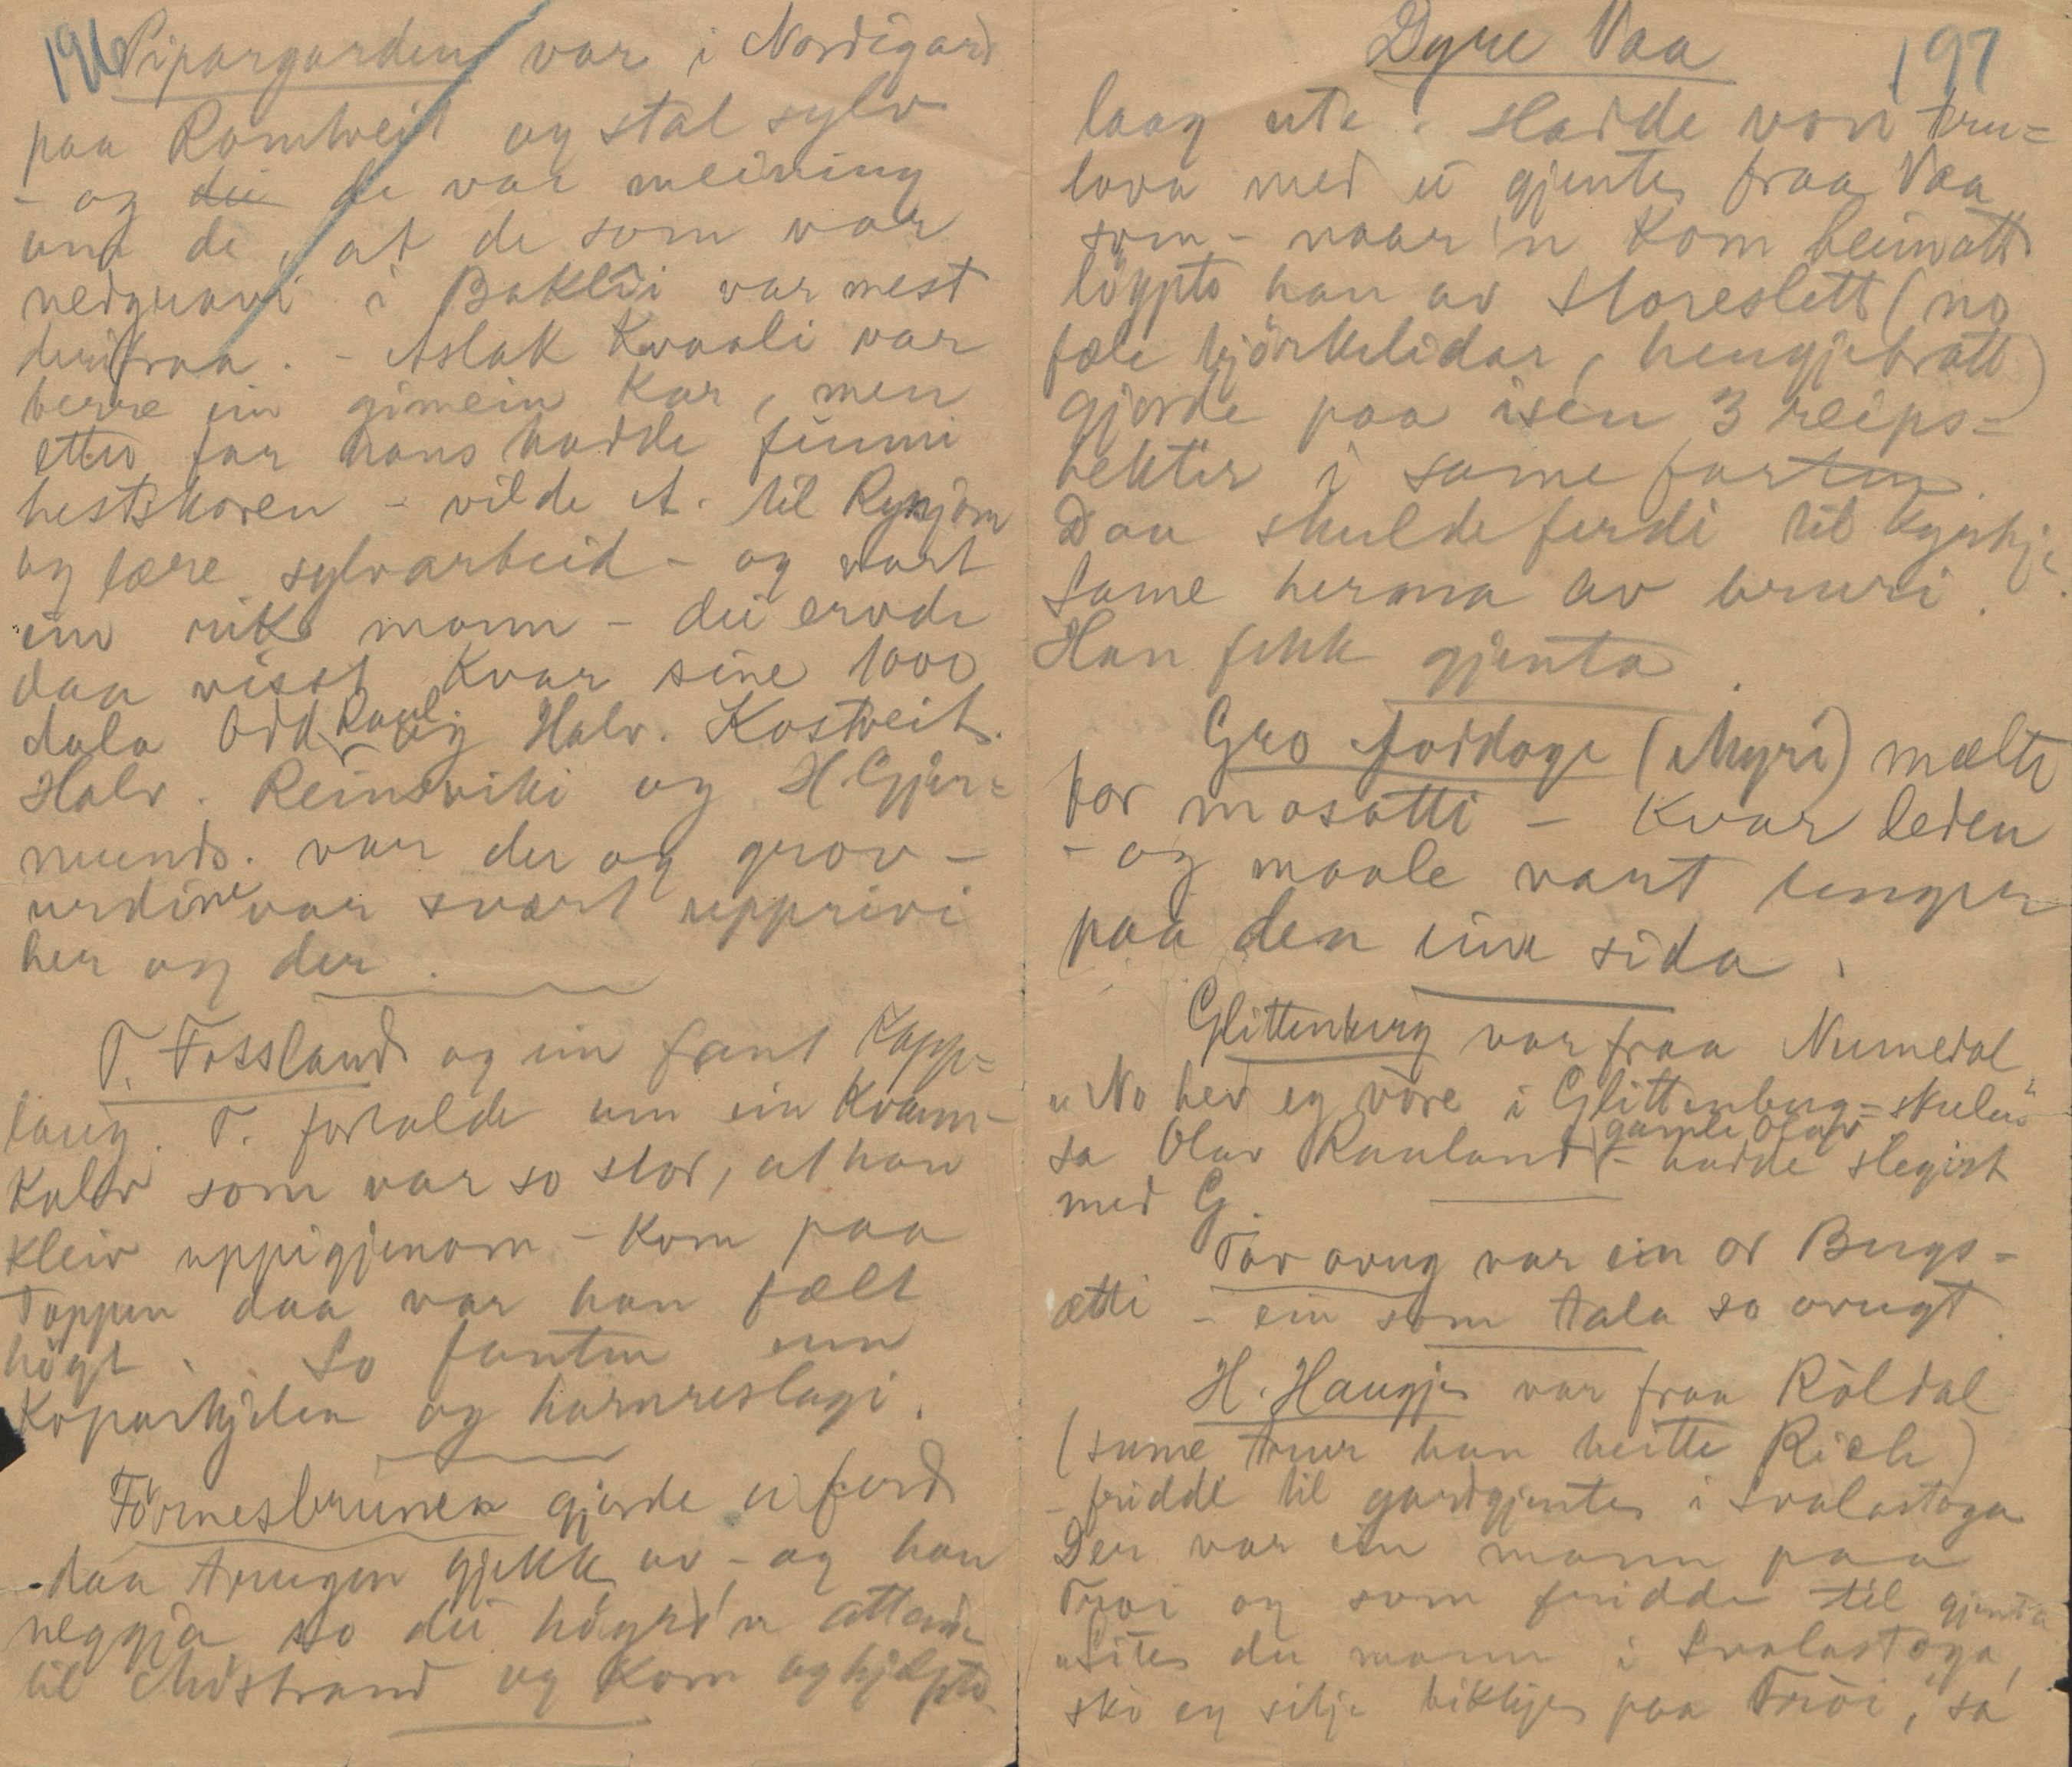 196
Pipargarden var i Nordigard
paa Romtveit og stal sylv
- og dei de var meining
um de, at de som var
nedgravi i Baklii var mest
derifraa. - Aslak Kvaali var
berre ein gimein kar, men
etter far hans hadde funni
hestskoren - vilde A. til
og lære sylvarbeid - og vart
ein rik mann - dei ervde
daa visst kvar sine 1000
dala Odd Raul. og Halv. Kostveit.
Halv. Reinsviki og H. Gjer=
munds. var der og grov -
urdine var svært upprivi
her og der.
T. Fossland og ein fant kapp=
laug. T. fortalde um ein Kvann-
kalv som var so stor, at han
kleiv uppigjenom - kom paa
toppen daa var han fælt
högt. So fanten um
Koparkjelen og harnreslagi.
Förnesbrunen gjorde ei ferd
- daa trugen gjekk av - og han
neggja so dei höyrd'n attende
til Midstrand og kom og hjelpte
197
Dyre Vaa
laag ute. Hadde vori tru=
lova med ei gjente fraa Vaa
som - naar'n kom heimatt
löypte han av Storeslett (no
fæle björkelidar, hengjebratt)
gjorde paa isen 3 reips=
bekter i same farten.
Daa skulde ferdi til kyrkje
Same herma av bruri.
Han fekk gjenta.
Gro Joddøge (Myri) mælte
for mosotti - kvar leden
- og maale vart lenger
paa den eine sida.
Glittenberg var fraa Numedal
"No hev eg vore i Glittenberg=skulen"
sa Olav Rauland - gamle Olav hadde slegist
med G.
Tov ovug var ein or Bugs=
ætti - ein som tala so ovugt
H. Haugje var fraa Röldal
(sume trur han heitte Rich)
- fridde til gardgjente i Svalastoga
Der var ein mann paa
Troi og som fridde til gjenta
"Sites du mann i Svalastoga,
sko eg silje bikkje paa Tröi", sa